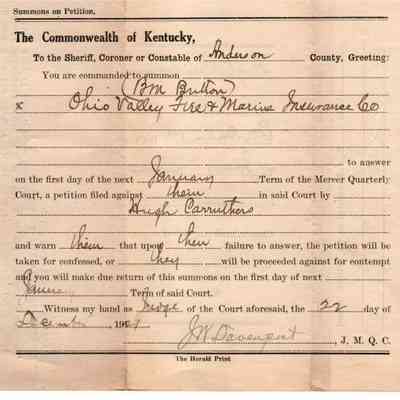 Summons on Petition.
The Commonwealth of Kentucky,
To the Sheriff, Coroner or Constable of Anderson County, Greeting:
You are commanded to summon
(BM Button)
x Ohio Valley Fire & Marine Insurance Co
to answer
on the first day of the next January Term of the Mercer Quarterly
Court, a petition filed against them in said Court by
Hugh Carruthers
and warn them that upon their failure to answer, the petition will be
taken for confessed, or they will be proceeded against for contempt
and you will make due return of this summons on the first day of next
Term of said Court.
Witness my hand as Judge of the Court aforesaid, the 22 day of
December
J W Davenport, J. M. Q. C.
The Herald Print